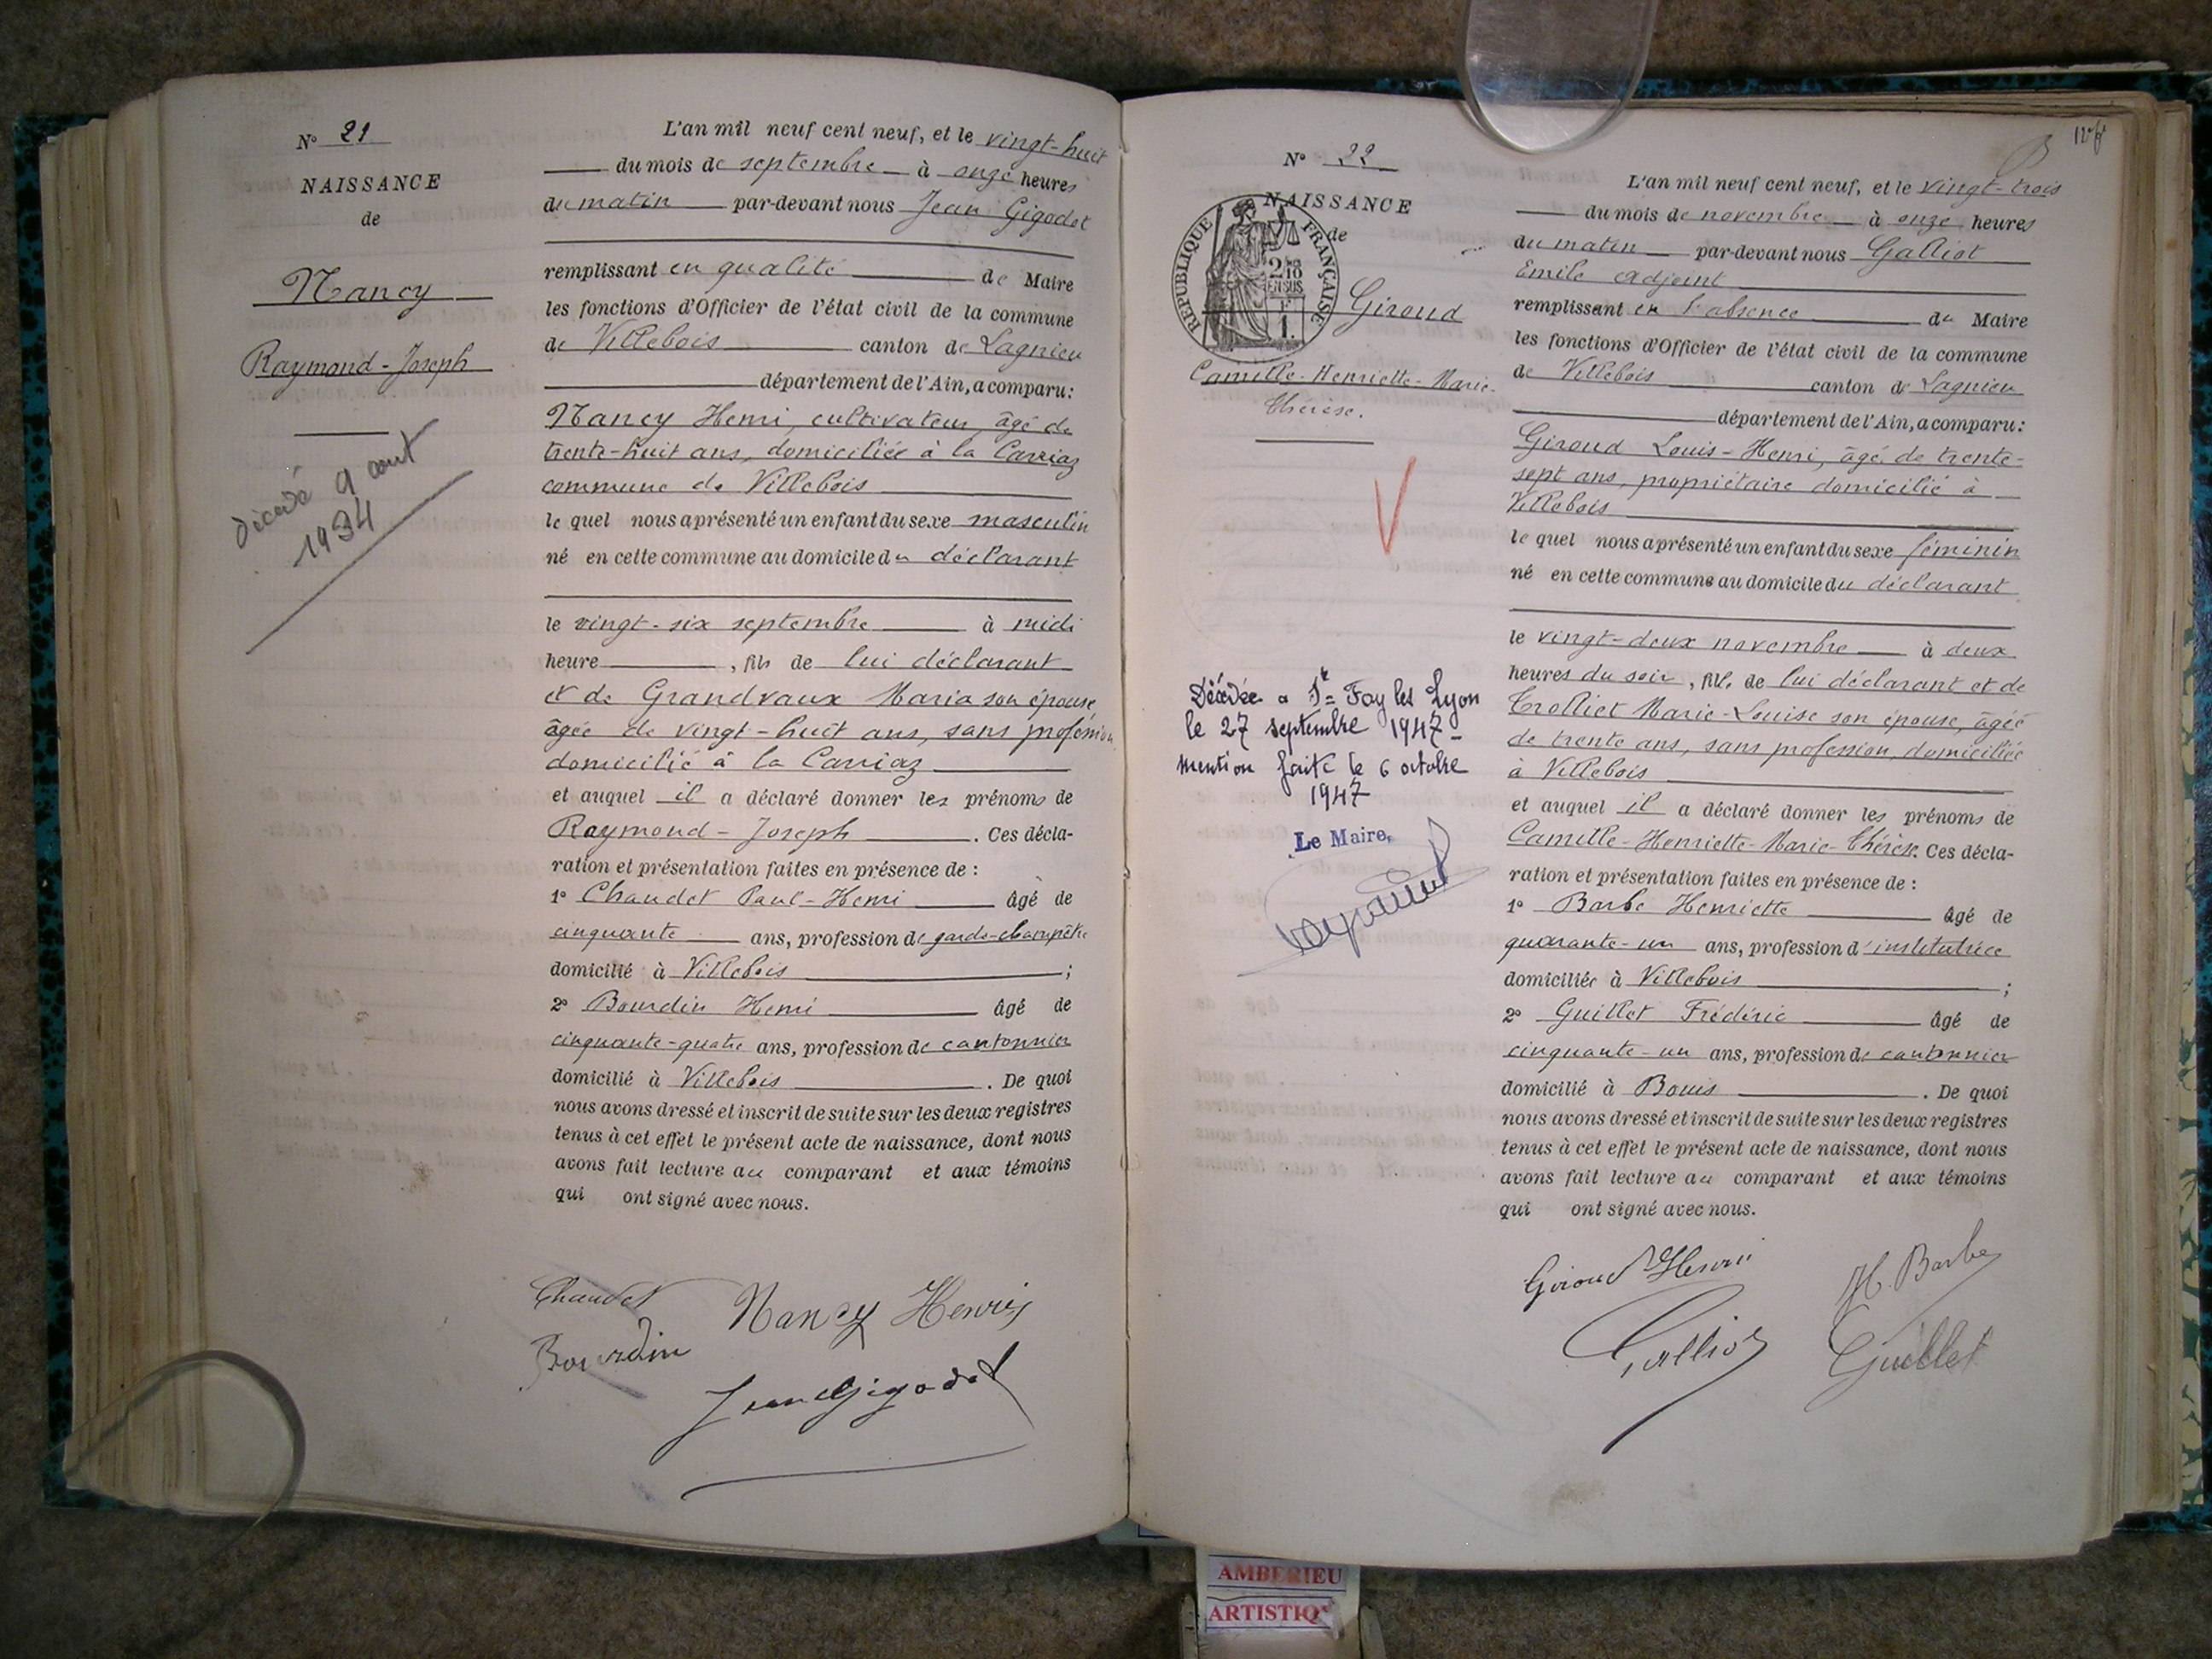 N° 21
NAISSANCE
de
Nancy
Raymond-Joseph
décédé 9 aout
1934
L'an mil neuf cent neuf, et le vingt-huit
du mois de septembre à onze heures
du matin par-devant nous Jean Gigodet
remplissant en qualité de Maire
les fonctions d'Officier de l'état civil de la commune
de Villebois canton de Lagnieu
département de l'Ain, a comparu:
Nancy Henri, cultivateur, âgé de
trente-huit ans, domiciliée à la Carriaz
commune de Villebois
le quel nous a présenté un enfant du sexe masculin
né en cette commune au domicile du déclarant
le vingt-six septembre à midi
heure , fils de lui déclarant
et de Grandvaux Maria son épouse,
âgée de vingt-huit ans, sans profession
domicilié à la Carriaz
et auquel il a déclaré donner les prénoms de
Raymond-Joseph . Ces décla-
ration et présentation faites en présence de :
1° Chaudet Paul-Henri âgé de
cinquante ans, profession de garde-champêtre
domicilié à Villebois ;
2° Bourdin Henri âgé de
cinquante-quatre ans, profession de cantonnier
domicilié à Villebois . De quoi
nous avons dressé et inscrit de suite sur les deux registres
tenus à cet effet le présent acte de naissance, dont nous
avons fait lecture au comparant et aux témoins
qui ont signé avec nous.
Chaudet Nancy Henri
Bourdin
Jean Gigodet
N° 22
NAISSANCE
de
RÉPUBLIQUE FRANÇAISE
Giroud
Camille-Henriette-Marie-
Thérèse.
Décédée a Ste Foy les Lyon
le 27 septembre 1947-
mention faite le 6 octobre
1947
Le Maire,
L'an mil neuf cent neuf, et le vingt-trois
du mois de novembre à onze heures
du matin par-devant nous Galliot
Emile adjoint
remplissant en l'absence du Maire
les fonctions d'Officier de l'état civil de la commune
de Villebois canton de Lagnieu
département de l'Ain, a comparu:
Giroud Louis-Henri, âgé de trente-
sept ans, propriétaire domicilié à
Villebois
le quel nous a présenté un enfant du sexe féminin
né en cette commune au domicile du déclarant
le vingt-deux novembre à deux
heures du soir , fille de lui déclarant et de
Trolliet Marie-Louise son épouse, âgée
de trente ans, sans profession, domiciliée
à Villebois
et auquel il a déclaré donner les prénoms de
Camille-Henriette-Marie-Thérèse. Ces décla-
ration et présentation faites en présence de :
1° Barbe Henriette âgé de
quarante-un ans, profession d'institutrice
domiciliée à Villebois ;
2° Guillet Frédéric âgé de
cinquante-un ans, profession de cantonnier
domicilié à Bouis . De quoi
nous avons dressé et inscrit de suite sur les deux registres
tenus à cet effet le présent acte de naissance, dont nous
avons fait lecture au comparant et aux témoins
qui ont signé avec nous.
Giroud Henri H. Barbe
Galliot Guillet
AMBERIEU
ARTISTIQ